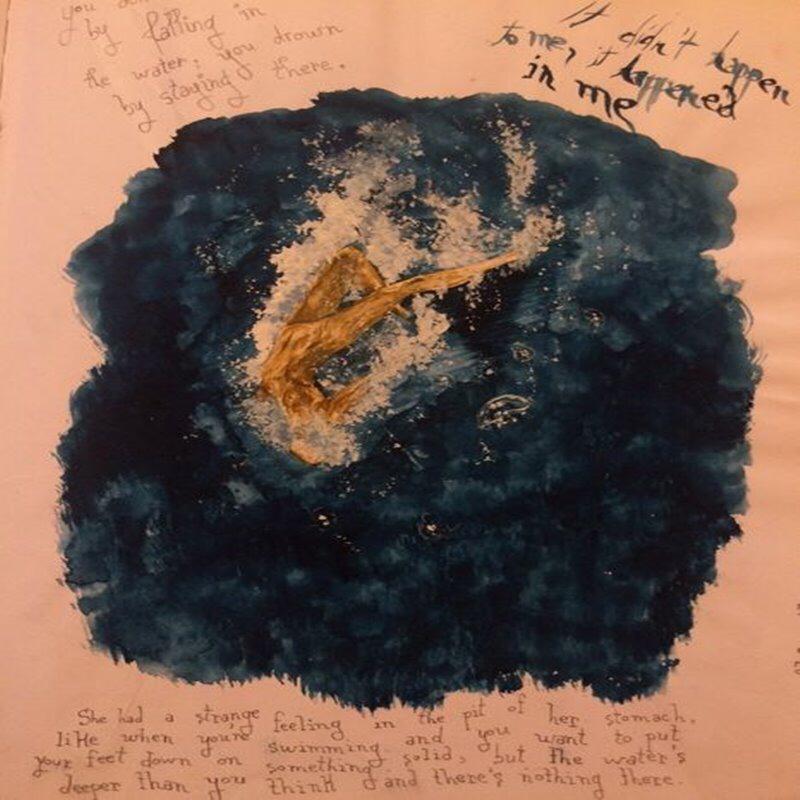 you don
by falling in
the water; you drown
by staying there.
It didn't happen
to me, it happened
in me
She had a strange feeling in the pit of her stomach,
like when you're swimming and you want to put
your feet down on something solid, but the water's
deeper than you think and there's nothing there.